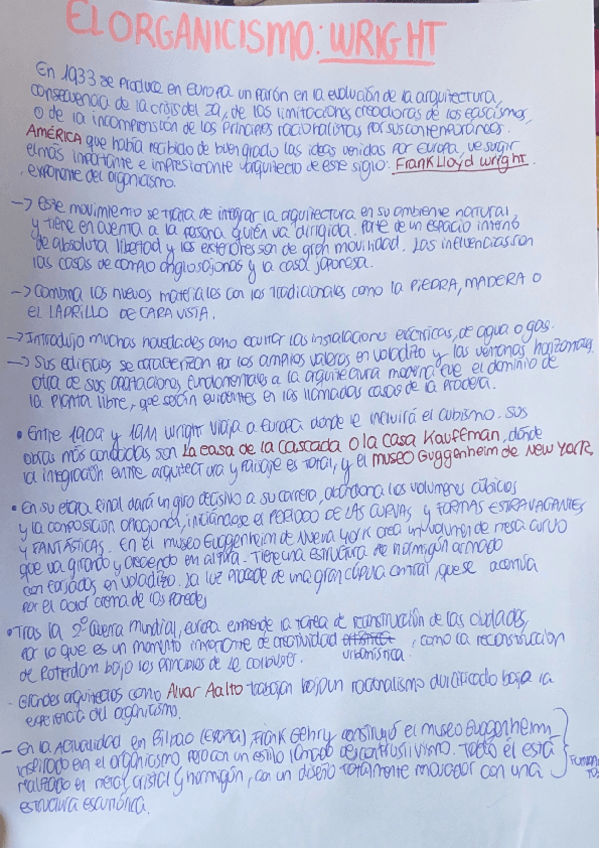 EL ORGANICISMO: WRIGHT
En 1933 se produce en Europa un parón en la evolución de la arquitectura,
consecuencia de la crisis del 29, de las limitaciones creadoras de los fascismos,
o de la incomprensión de los principios racionalistas por sus contemporáneos.
AMÉRICA que había recibido de buen grado las ideas venidas por Europa, ve surgir
el más importante e impresionante arquitecto de este siglo: Frank Lloyd Wright.
exponente del organicismo.
→ Este movimiento se trata de integrar la arquitectura en su ambiente natural,
y tiene en cuenta a la persona quién va dirigida. Parte de un espacio interno
de absoluta libertad y los exteriores son de gran movilidad. Las influencias son
las casas de campo anglosajonas y la casa japonesa.
→ Combina los nuevos materiales con los tradicionales como la PIEDRA, MADERA O
EL LADRILLO DE CARA VISTA.
→ Introdujo muchas novedades como ocultar las instalaciones eléctricas, de agua o gas.
→ Sus edificios se caracterizan por los amplios valeros en voladizo y las ventanas horizontales.
otra de sus aportaciones fundamentales a la arquitectura moderna fue el dominio de
la planta libre, que serán evidentes en las llamadas casas de la pradera.
• Entre 1909 y 1911 Wright viaja a Europa donde le influirá el cubismo. Sus
obras más conocidas son La casa de la cascada o la casa Kauffman, donde
la integración entre arquitectura y paisaje es total, y el museo Guggenheim de New York,
• En su etapa final dará un giro decisivo a su carrera, abandona los volúmenes cúbicos
y la composición ortogonal, iniciándose el PERIODO DE LAS CURVAS y FORMAS ESTRAVAGANTES
y FANTÁSTICAS. En el museo Guggenheim de Nueva York crea un volumen de curvo
que va girando y creciendo en altura. Tiene una estructura de hormigón armado
con forjados en voladizo. La luz procede de una gran cúpula central, que se acentúa
por el color crema de las paredes
• Tras la 2º Guerra mundial, europa emprende la tarea de reconstrucción de las ciudades,
por lo que es un momento importante de creatividad urbanística, como la reconstrucción
de Roterdam bajo los principios de le corbusier.
- Grandes arquitectos como Alvar Aalto trabajan bajo un racionalismo dulcificado bajo la
experiencia del organicismo.
- En la actualidad en Bilbao (España), Frank Gehry construyó el museo Guggenheim,
inspirado en el organicismo pero con un estilo llamado desconstructivismo. Todo él está
realizado en metal, cristal y hormigón, con un diseño totalmente innovador con una
estructura escultórica.